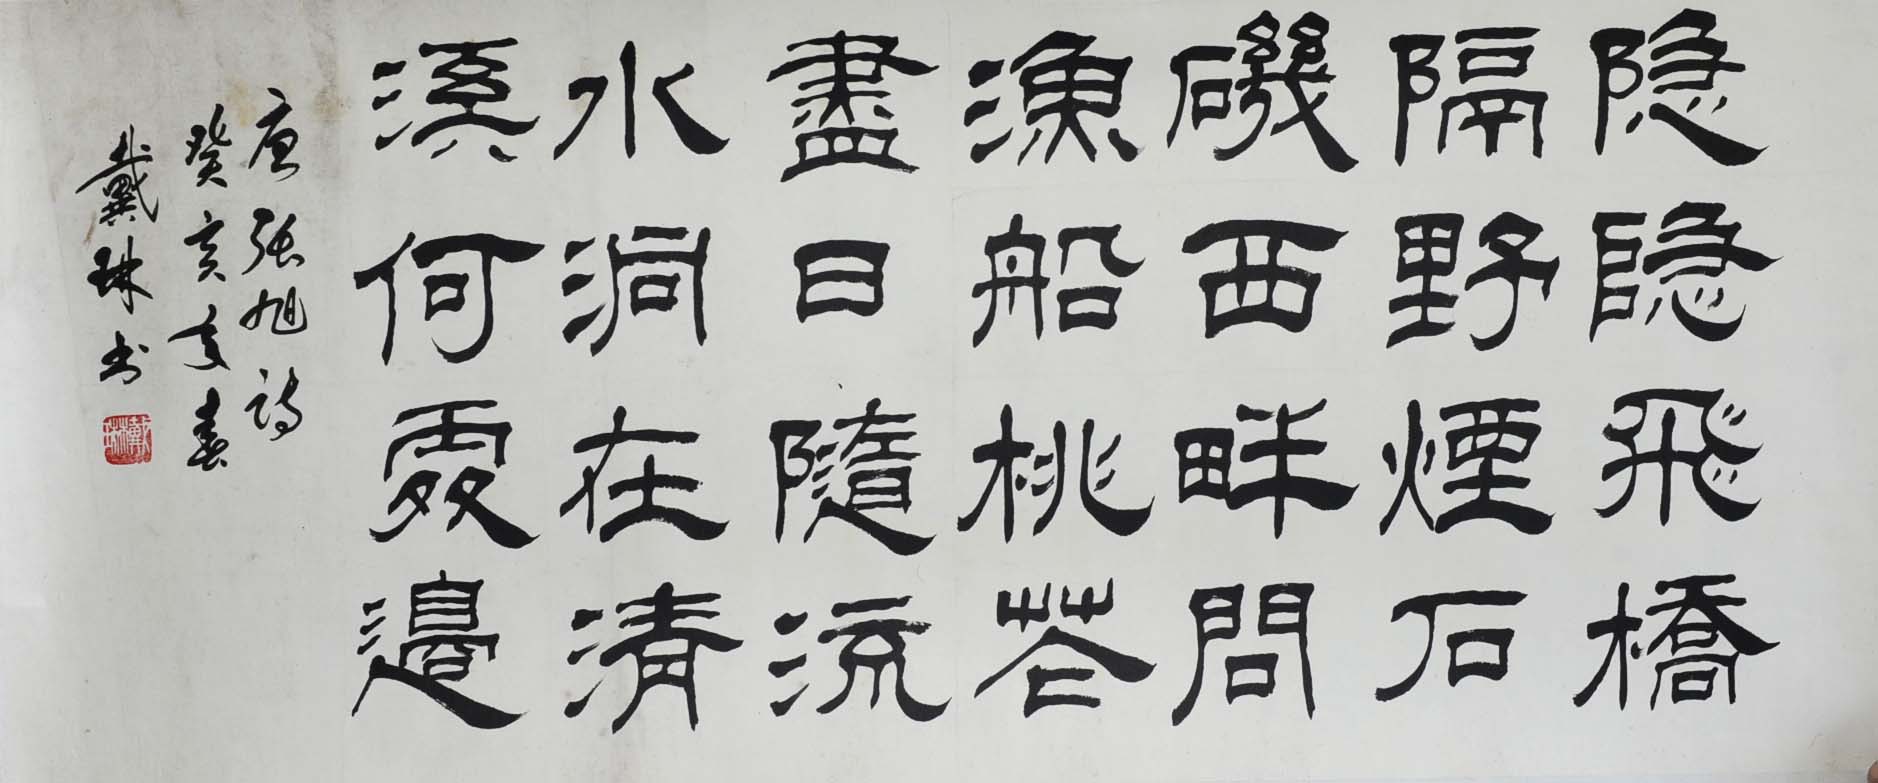 隐隐飛橋
隔野煙石
磯西畔問
漁船桃花
盡日隨流
水洞在清
溪何處邊
唐張旭詩
癸亥年春
戴琳书
戴琳